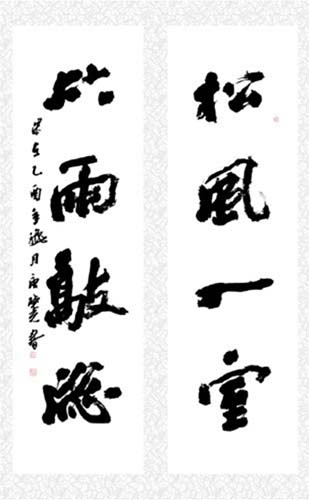 松風一室
竹雨敲
歲在乙酉年臘月唐書